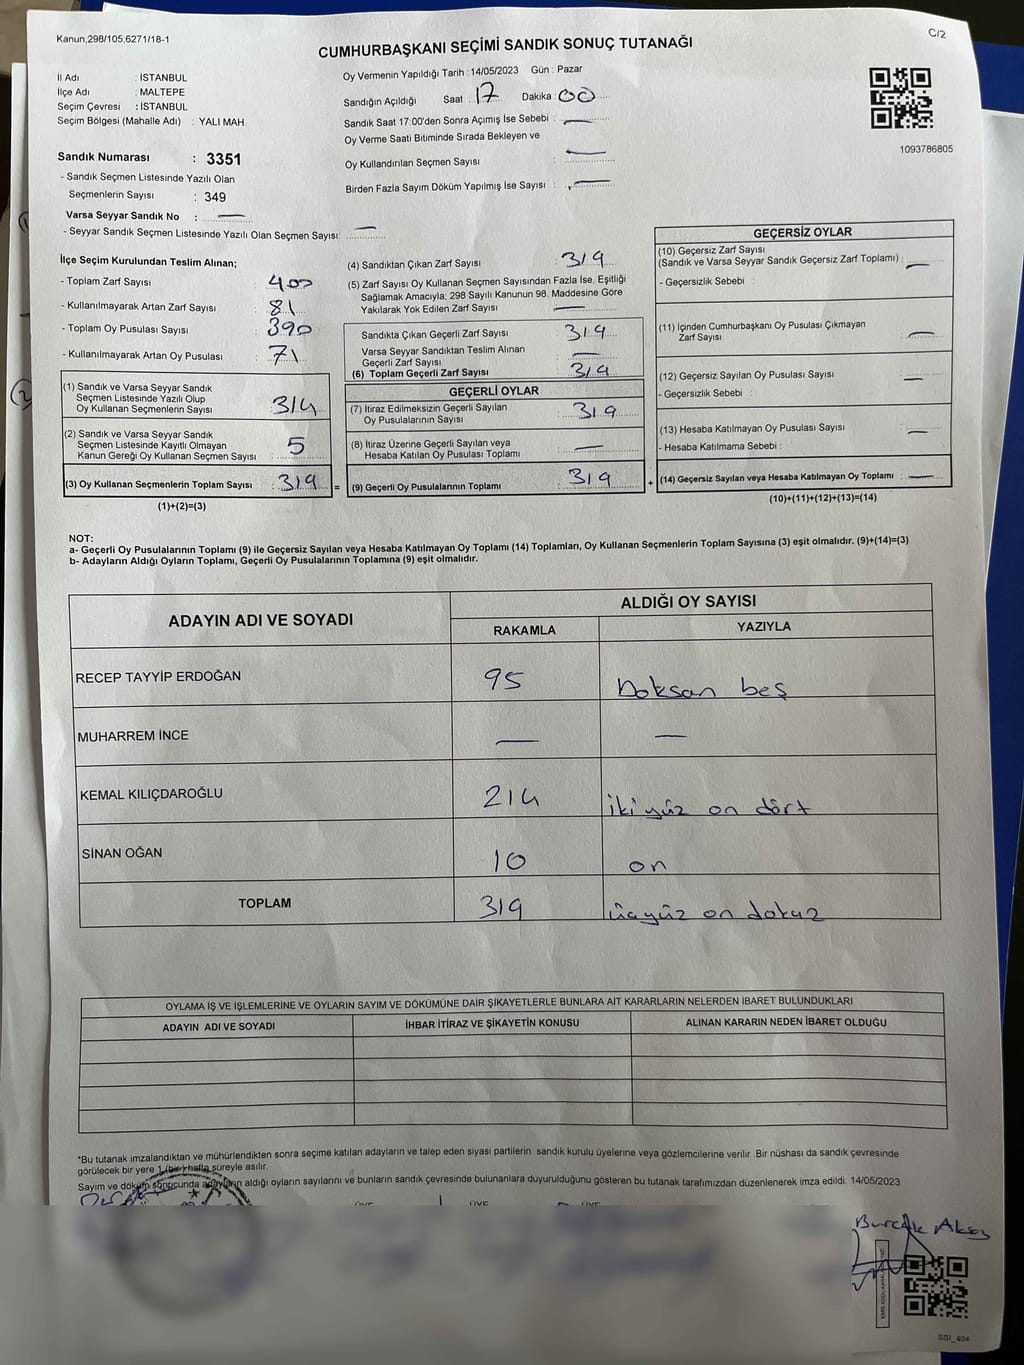 Kanun,298/105,6271/18-1
C/2
CUMHURBAŞKANI SEÇİMİ SANDIK SONUÇ TUTANAĞI
İl Adı : İSTANBUL
İlçe Adı : MALTEPE
Seçim Çevresi : İSTANBUL
Seçim Bölgesi (Mahalle Adı) : YALI MAH.
Sandık Numarası : 3351
- Sandık Seçmen Listesinde Yazılı Olan
Seçmenlerin Sayısı : 349
Varsa Seyyar Sandık No : —
- Seyyar Sandık Seçmen Listesinde Yazılı Olan Seçmen Sayısı: —
Oy Vermenin Yapıldığı Tarih : 14/05/2023 Gün : Pazar
Sandığın Açıldığı Saat : 17 Dakika : 00
Sandık Saat 17:00'den Sonra Açımış İse Sebebi : —
Oy Verme Saati Bitiminde Sırada Bekleyen ve
Oy Kullandırılan Seçmen Sayısı : —
Birden Fazla Sayım Döküm Yapılmış İse Sayısı : —
1093786805
İlçe Seçim Kurulundan Teslim Alınan;
- Toplam Zarf Sayısı : 400
- Kullanılmayarak Artan Zarf Sayısı : 81
- Toplam Oy Pusulası Sayısı : 390
- Kullanılmayarak Artan Oy Pusulası : 71
(1) Sandık ve Varsa Seyyar Sandık
Seçmen Listesinde Yazılı Olup
Oy Kullanan Seçmenlerin Sayısı : 314
(2) Sandık ve Varsa Seyyar Sandık
Seçmen Listesinde Kayıtlı Olmayan
Kanun Gereği Oy Kullanan Seçmen Sayısı : 5
(3) Oy Kullanan Seçmenlerin Toplam Sayısı : 319
(1)+(2)=(3)
(4) Sandıktan Çıkan Zarf Sayısı : 319
(5) Zarf Sayısı Oy Kullanan Seçmen Sayısından Fazla İse, Eşitliği
Sağlamak Amacıyla; 298 Sayılı Kanunun 98. Maddesine Göre
Yakılarak Yok Edilen Zarf Sayısı : —
Sandıkta Çıkan Geçerli Zarf Sayısı : 319
Varsa Seyyar Sandıktan Teslim Alınan
Geçerli Zarf Sayısı : —
(6) Toplam Geçerli Zarf Sayısı : 319
GEÇERLİ OYLAR
(7) İtiraz Edilmeksizin Geçerli Sayılan
Oy Pusulalarının Sayısı : 319
(8) İtiraz Üzerine Geçerli Sayılan veya
Hesaba Katılan Oy Pusulası Toplamı : —
= (9) Geçerli Oy Pusulalarının Toplamı : 319
GEÇERSİZ OYLAR
(10) Geçersiz Zarf Sayısı
(Sandık ve Varsa Seyyar Sandık Geçersiz Zarf Toplamı) : —
- Geçersizlik Sebebi :
(11) İçinden Cumhurbaşkanı Oy Pusulası Çıkmayan
Zarf Sayısı : —
(12) Geçersiz Sayılan Oy Pusulası Sayısı : —
- Geçersizlik Sebebi :
(13) Hesaba Katılmayan Oy Pusulası Sayısı : —
- Hesaba Katılmama Sebebi :
+ (14) Geçersiz Sayılan veya Hesaba Katılmayan Oy Toplamı : —
(10)+(11)+(12)+(13)=(14)
NOT:
a- Geçerli Oy Pusulalarının Toplamı (9) ile Geçersiz Sayılan veya Hesaba Katılmayan Oy Toplamı (14) Toplamları, Oy Kullanan Seçmenlerin Toplam Sayısına (3) eşit olmalıdır. (9)+(14)=(3)
b- Adayların Aldığı Oyların Toplamı, Geçerli Oy Pusulalarının Toplamına (9) eşit olmalıdır.
ADAYIN ADI VE SOYADI
ALDIĞI OY SAYISI
RAKAMLA YAZIYLA
RECEP TAYYİP ERDOĞAN 95 Doksan beş
MUHARREM İNCE — —
KEMAL KILIÇDAROĞLU 214 iki yüz on dört
SİNAN OĞAN 10 on
TOPLAM 319 üçyüz on dokuz
OYLAMA İŞ VE İŞLEMLERİNE VE OYLARIN SAYIM VE DÖKÜMÜNE DAİR ŞİKAYETLERLE BUNLARA AİT KARARLARIN NELERDEN İBARET BULUNDUKLARI
ADAYIN ADI VE SOYADI İHBAR İTİRAZ VE ŞİKAYETİN KONUSU ALINAN KARARIN NEDEN İBARET OLDUĞU
*Bu tutanak imzalandıktan ve mühürlendikten sonra seçime katılan adayların ve talep eden siyasi partilerin sandık kurulu üyelerine veya gözlemcilerine verilir .Bir nüshası da sandık çevresinde
görülecek bir yere 1 (bir) hafta süreyle asılır.
Sayım ve döküm sonucunda adayların aldığı oyların sayılarını ve bunların sandık çevresinde bulunanlara duyurulduğunu gösteren bu tutanak tarafımızdan düzenlenerek imza edildi. 14/05/2023
ÜYE ÜYE ÜYE
Burcak Aksoy
SSİ_404